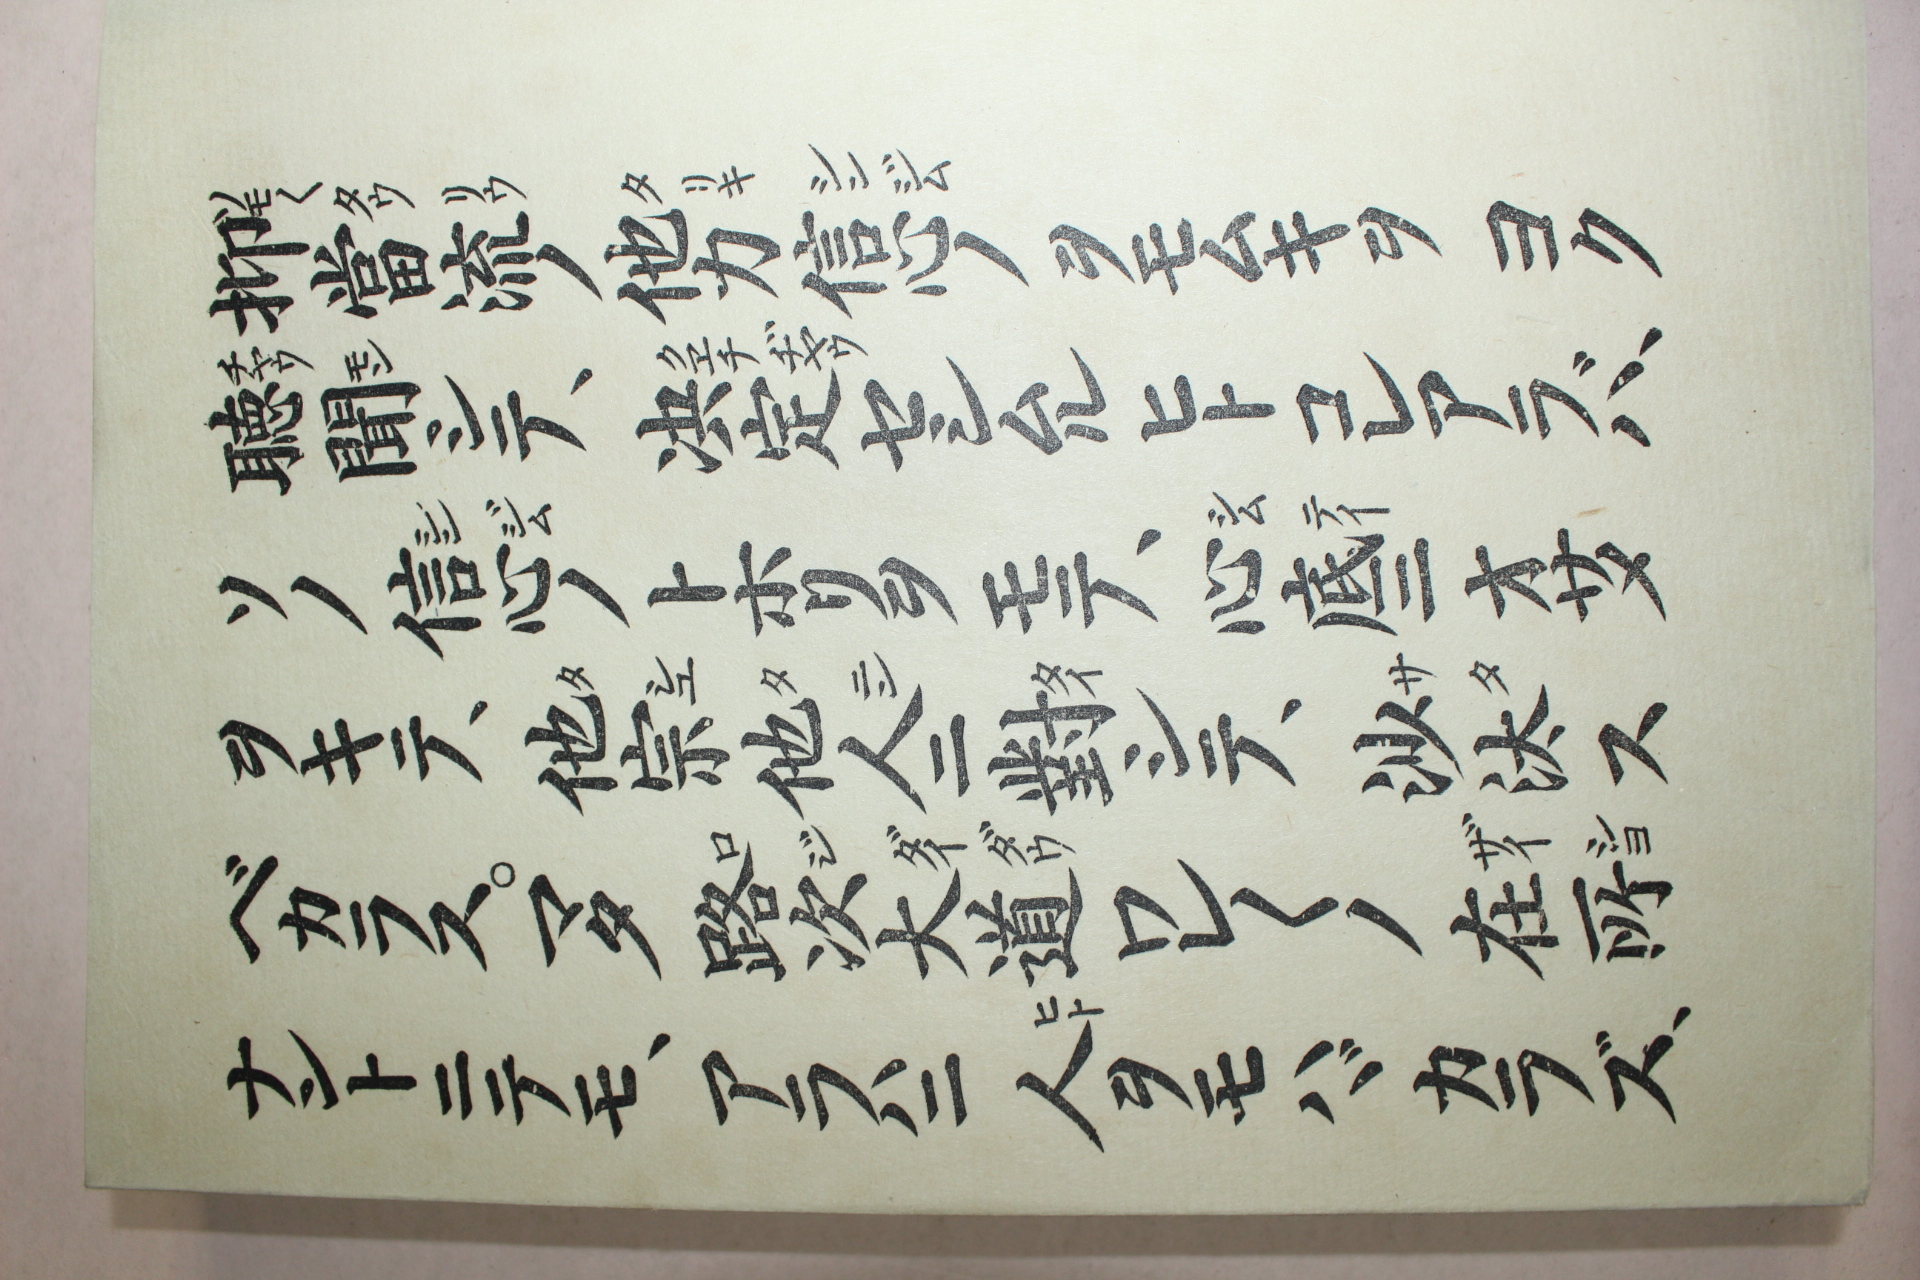 抑當流ノ他力信心ノヲモムキヲヨク
聴聞シテ、決定セシムルヒトコレアラバ、
ソノ信心ノトホリヲモテ、心底ニオサメ
ヲキテ、他宗他人ニ對シテ、沙汰ス
ベカラス。マタ路次大道ワレ〱ノ在所
ナントニテモ、アラハニ人ヲモハヾカラズ、